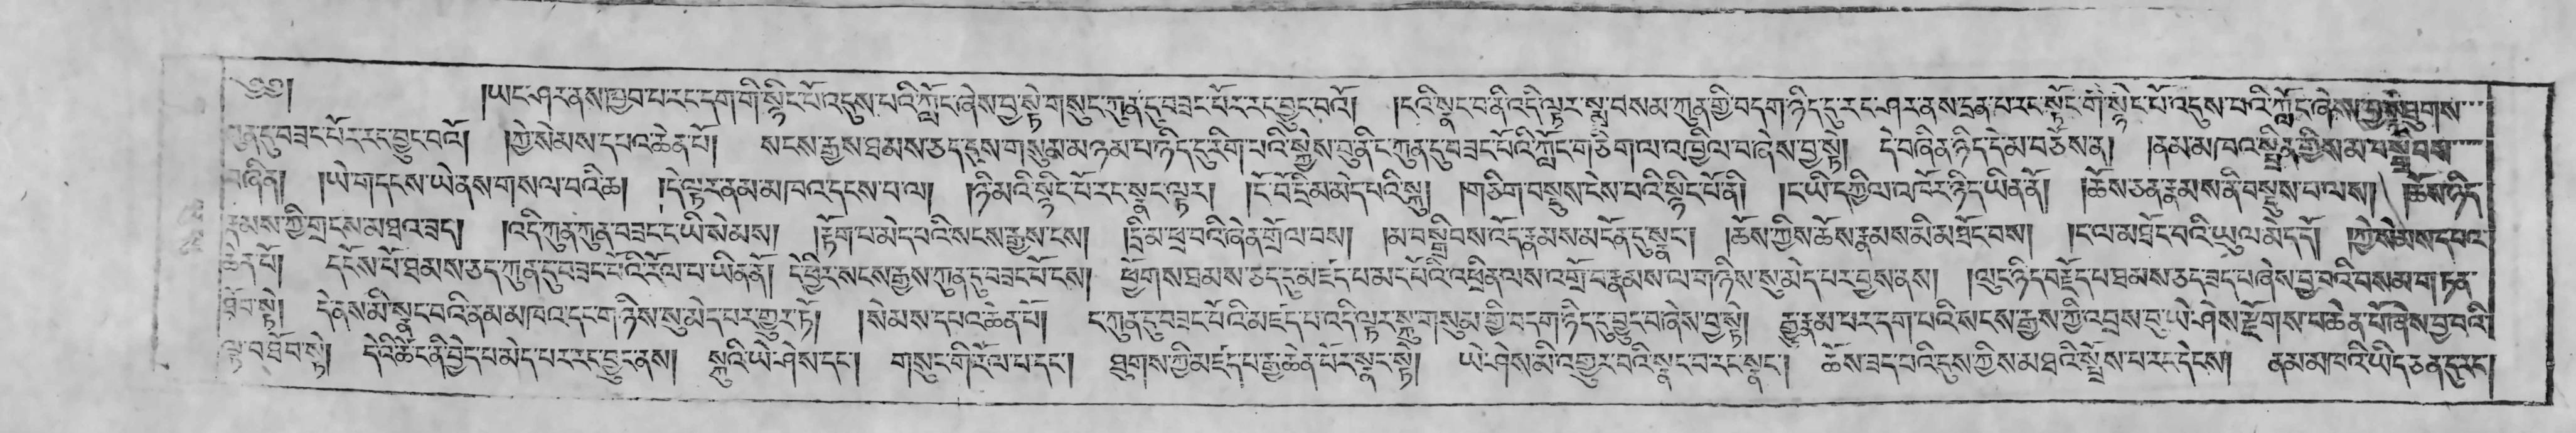 ༄༅། །ཡང་ཤར་ནས་ཁྱབ་པར་དག་གི་སྙིང་པོ་འདུས་པའི་ཀློང་ཞེས་བྱ་སྟེ་གསུང་ཀུན་ཏུ་བཟང་པོར་རང་བྱུང་བའོ། །ངའི་སྣང་བ་ནི་འདི་ལྟར་སྨྲ་བསམ་ཀུན་གྱི་བདག་ཉིད་དུ་རང་ཤར་ནས་དྲན་པ་རང་སྟོང་གི་སྙིང་པོ་འདུས་པའི་ཀློང་ཞེས་བྱ་སྟེ་ཐུགས་
ཀུན་ཏུ་བཟང་པོར་རང་བྱུང་བའོ། །ཀྱེ་སེམས་དཔའ་ཆེན་པོ། སངས་རྒྱས་ཐམས་ཅད་དུས་གསུམ་མཉམ་པ་ཉིད་དུ་རིག་པའི་སྐྱེས་བུ་ནི་ང་ཀུན་ཏུ་བཟང་པོའི་ཀློང་གཅིག་ལ་འཁྱིལ་བ་ཞེས་བྱ་སྟེ། དེ་བཞིན་ཉིད་དེ་མ་བཅོས་ན། །ནམ་མཁའ་སྤྲིན་གྱིས་མ་བསྒྲིབས་
བཞིན། །ཡེ་གདངས་ཡེ་ནས་གསལ་བའི་ཆ། །དེ་ལྟར་ནམ་མཁའ་དངས་པ་ལ། །ཉི་མའི་སྙིང་པོ་རང་སྣང་ལྟར། །ངོ་བོ་དྲི་མ་མེད་པའི་སྐུ། །གཅིག་བསྡུས་ངེས་པའི་སྙིང་པོ་ནི། །ང་ཡི་དཀྱིལ་འཁོར་ཉིད་ཡིན་ནོ། །ཆོས་ཅན་རྣམས་ནི་བསྡུས་པ་ལས། །ཆོས་ཉིད་
རྣམས་ཀྱི་གྲངས་མཐའ་ཟད། །འདི་ཀུན་ཀུན་བཟང་ང་ཡི་སེམས། །རྟོག་པ་མེད་པའི་སངས་རྒྱས་ངས། །དྲི་མ་ཕྲ་བའི་ཞེན་གྲོལ་བས། །མ་བསྒྲིབས་འོད་རྣམས་མངོན་དུ་སྣང་། །ཆོས་ཀྱིས་ཆོས་རྣམས་མི་མཐོང་བས། །ང་ལ་མཐོང་བའི་ཡུལ་མེད་དོ། །ཀྱེ་སེམས་དཔའ་
ཆེན་པོ། དངོས་པོ་ཐམས་ཅད་ཀུན་ཏུ་བཟང་པོའི་རོལ་པ་ཡིན་ནོ། དེ་ཕྱིར་སངས་རྒྱས་ཀུན་ཏུ་བཟང་པོ་ངས། ཕྱོགས་ཐམས་ཅད་དུ་མཛད་པ་མང་པོའི་འཕྲིན་ལས་འགྲོ་བ་རྣམས་ལ་གཉིས་སུ་མེད་པར་བྱས་ནས། །ལུང་ཉིད་བརྗོད་པ་ཐམས་ཅད་ཟད་པ་ཞེས་བྱ་བའི་བསམ་གཏན་
ཐོབ་སྟེ། དེ་ནས་མི་སྣང་བའི་ནམ་མཁའ་དང་གཉིས་སུ་མེད་པར་གྱུར་ཏོ། །སེམས་དཔའ་ཆེན་པོ། ང་ཀུན་ཏུ་བཟང་པོའི་མཛད་པ་འདི་ལྟར་སྐུ་གསུམ་གྱི་བདག་ཉིད་དུ་བྱུང་བ་ཞེས་བྱ་སྟེ། རྒྱུ་རྣམ་པར་དག་པའི་སངས་རྒྱས་ཀྱི་འབྲས་བུ་ཡེ་ཤེས་རྫོགས་པ་ཆེན་པོ་ཞེས་བྱ་བའི་
ལྟ་བ་ཐོབ་སྟེ། དེའི་ཚེ་ང་ནི་བྱེད་པ་མེད་པར་རང་བྱུང་ནས། སྐུའི་ཡེ་ཤེས་དང་། གསུང་གི་རོལ་པ་དང་། ཐུགས་ཀྱི་མཛད་པ་རྒྱ་ཆེན་པོར་སྣང་སྟེ། ཡེ་ཤེས་མི་འགྱུར་བའི་སྣང་བ་རང་སྣང་། ཆོས་ཟད་པའི་དུས་ཀྱིས་མཐའི་སྤྲོས་པ་རང་དེངས། ནམ་མཁའི་ཡིད་ཅན་དུ་རང་